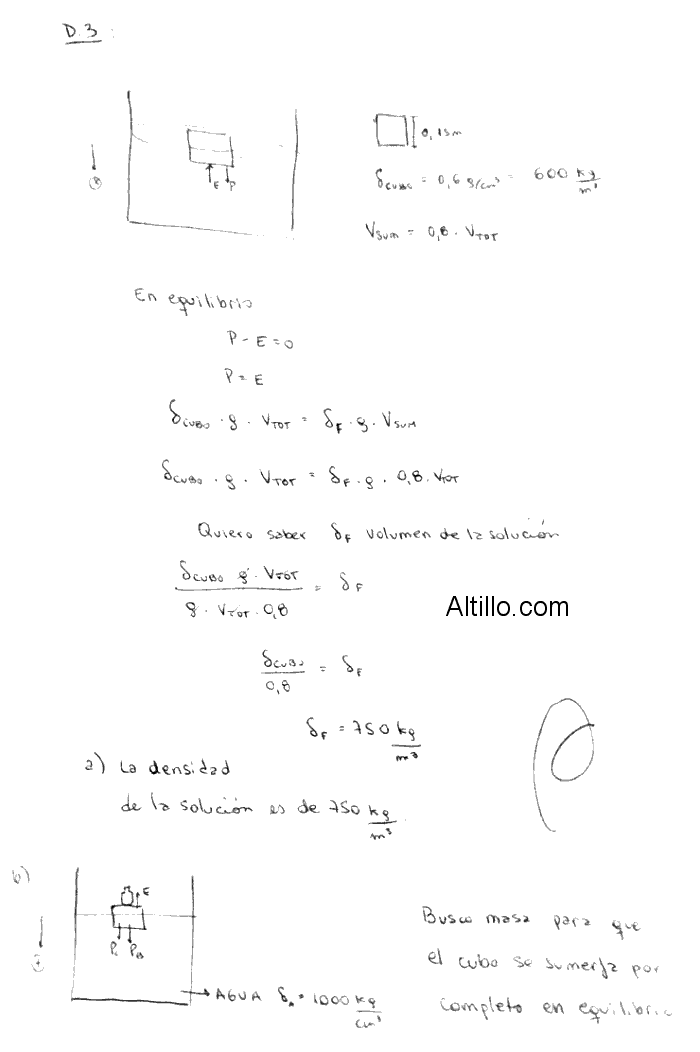 D.3 :
0,15m
δcubo = 0,6 g/cm³ = 600 kg/m³
E P
Vsum = 0,8 · VTOT
En equilibrio
P - E = 0
P = E
δcubo · g · VTOT = δF · g · VSUM
δcubo · g · VTOT = δF · g · 0,8 · VTOT
Quiero saber δF volumen de la solución
δcubo g · VTOT / g · VTOT · 0,8 = δF
Altillo.com
δcubo / 0,8 = δF
δF = 750 kg/m³
a) La densidad
de la solución es de 750 kg/m³
b)
E
Busco masa para que
el cubo se sumerja por
completo en equilibrio
AGUA δA = 1000 kg/cm³